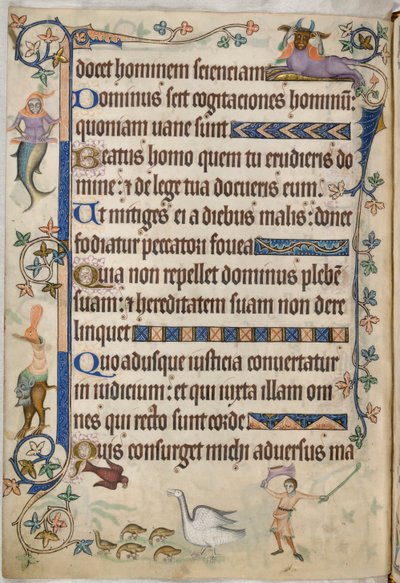 docet hominem scienciam
Dominus scit cogitaciones hominū:
quoniam uane sunt
Beatus homo quem tu erudieris do
mine: ⁊ de lege tua docueris eum.
Ut mitiges ei a diebus malis: donec
fodiatur peccatori fouea
Quia non repellet dominus plebē
suam: ⁊ hereditatem suam non dere
linquet
Quo adusque iusticia conuertatur
in iudicium: et qui iuxta illam om
nes qui recto sunt corde
Quis consurget michi aduersus ma